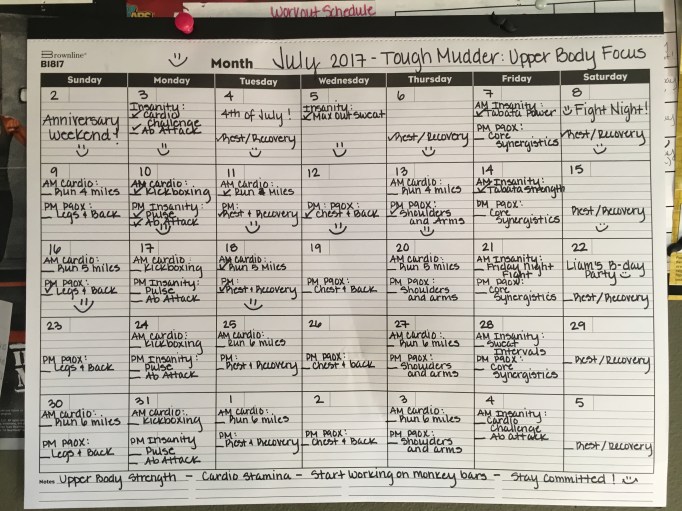 Workout Schedule
Brownline
B1817
Month July 2017 - Tough Mudder: Upper Body Focus
Sunday Monday Tuesday Wednesday Thursday Friday Saturday
2
Anniversary
Weekend!
3
Insanity:
Cardio
Challenge
Ab Attack
4
4th of July!
Rest/Recovery
5
Insanity:
Max out sweat
6
Rest/Recovery
7
AM Insanity:
Tabata Power
PM P90X:
Core
Synergistics
8
Fight Night!
Rest/Recovery
9
AM Cardio:
Run 4 miles
PM P90X:
Legs + Back
10
AM Cardio:
Kickboxing
PM Insanity:
Pulse
Ab Attack
11
AM Cardio:
Run Miles
PM:
Rest + Recovery
12
PM P90X:
Chest + Back
13
AM Cardio:
Run 4 miles
PM P90X:
Shoulders
and Arms
14
AM Insanity:
Tabata Strength
PM P90X:
Core
Synergistics
15
Rest/Recovery
16
AM Cardio:
Run 5 miles
PM P90X:
Legs + Back
17
AM Cardio:
Kickboxing
PM Insanity:
Pulse
Ab Attack
18
AM Cardio:
Run 5 Miles
PM:
Rest + Recovery
19
PM P90X:
Chest + Back
20
AM Cardio:
Run 5 miles
PM P90X:
Shoulders
and arms
21
AM Insanity:
Friday Night
Fight
PM P90X:
Core
Synergistics
22
Liam's B-day
Party
Rest/Recovery
23
PM P90X:
Legs + Back
24
AM Cardio:
Kickboxing
PM Insanity:
Pulse
Ab Attack
25
AM Cardio:
Run 6 miles
PM:
Rest + Recovery
26
PM P90X:
Chest + back
27
AM Cardio:
Run 6 miles
PM P90X:
Shoulders
and arms
28
AM Insanity:
Sweat
Intervals
PM P90X:
Core
Synergistics
29
Rest/Recovery
30
AM Cardio:
Run 6 miles
PM P90X:
Legs + Back
31
AM Cardio:
Kickboxing
PM Insanity
Pulse
Ab Attack
1
AM Cardio:
Run 6 miles
PM:
Rest + Recovery
2
PM P90X:
Chest + Back
3
AM Cardio:
Run 6 miles
PM P90X:
Shoulders
and arms
4
AM Insanity:
Cardio
Challenge
Ab attack
5
Rest/Recovery
Notes Upper Body Strength - Cardio Stamina - Start working on monkey bars - Stay Committed!